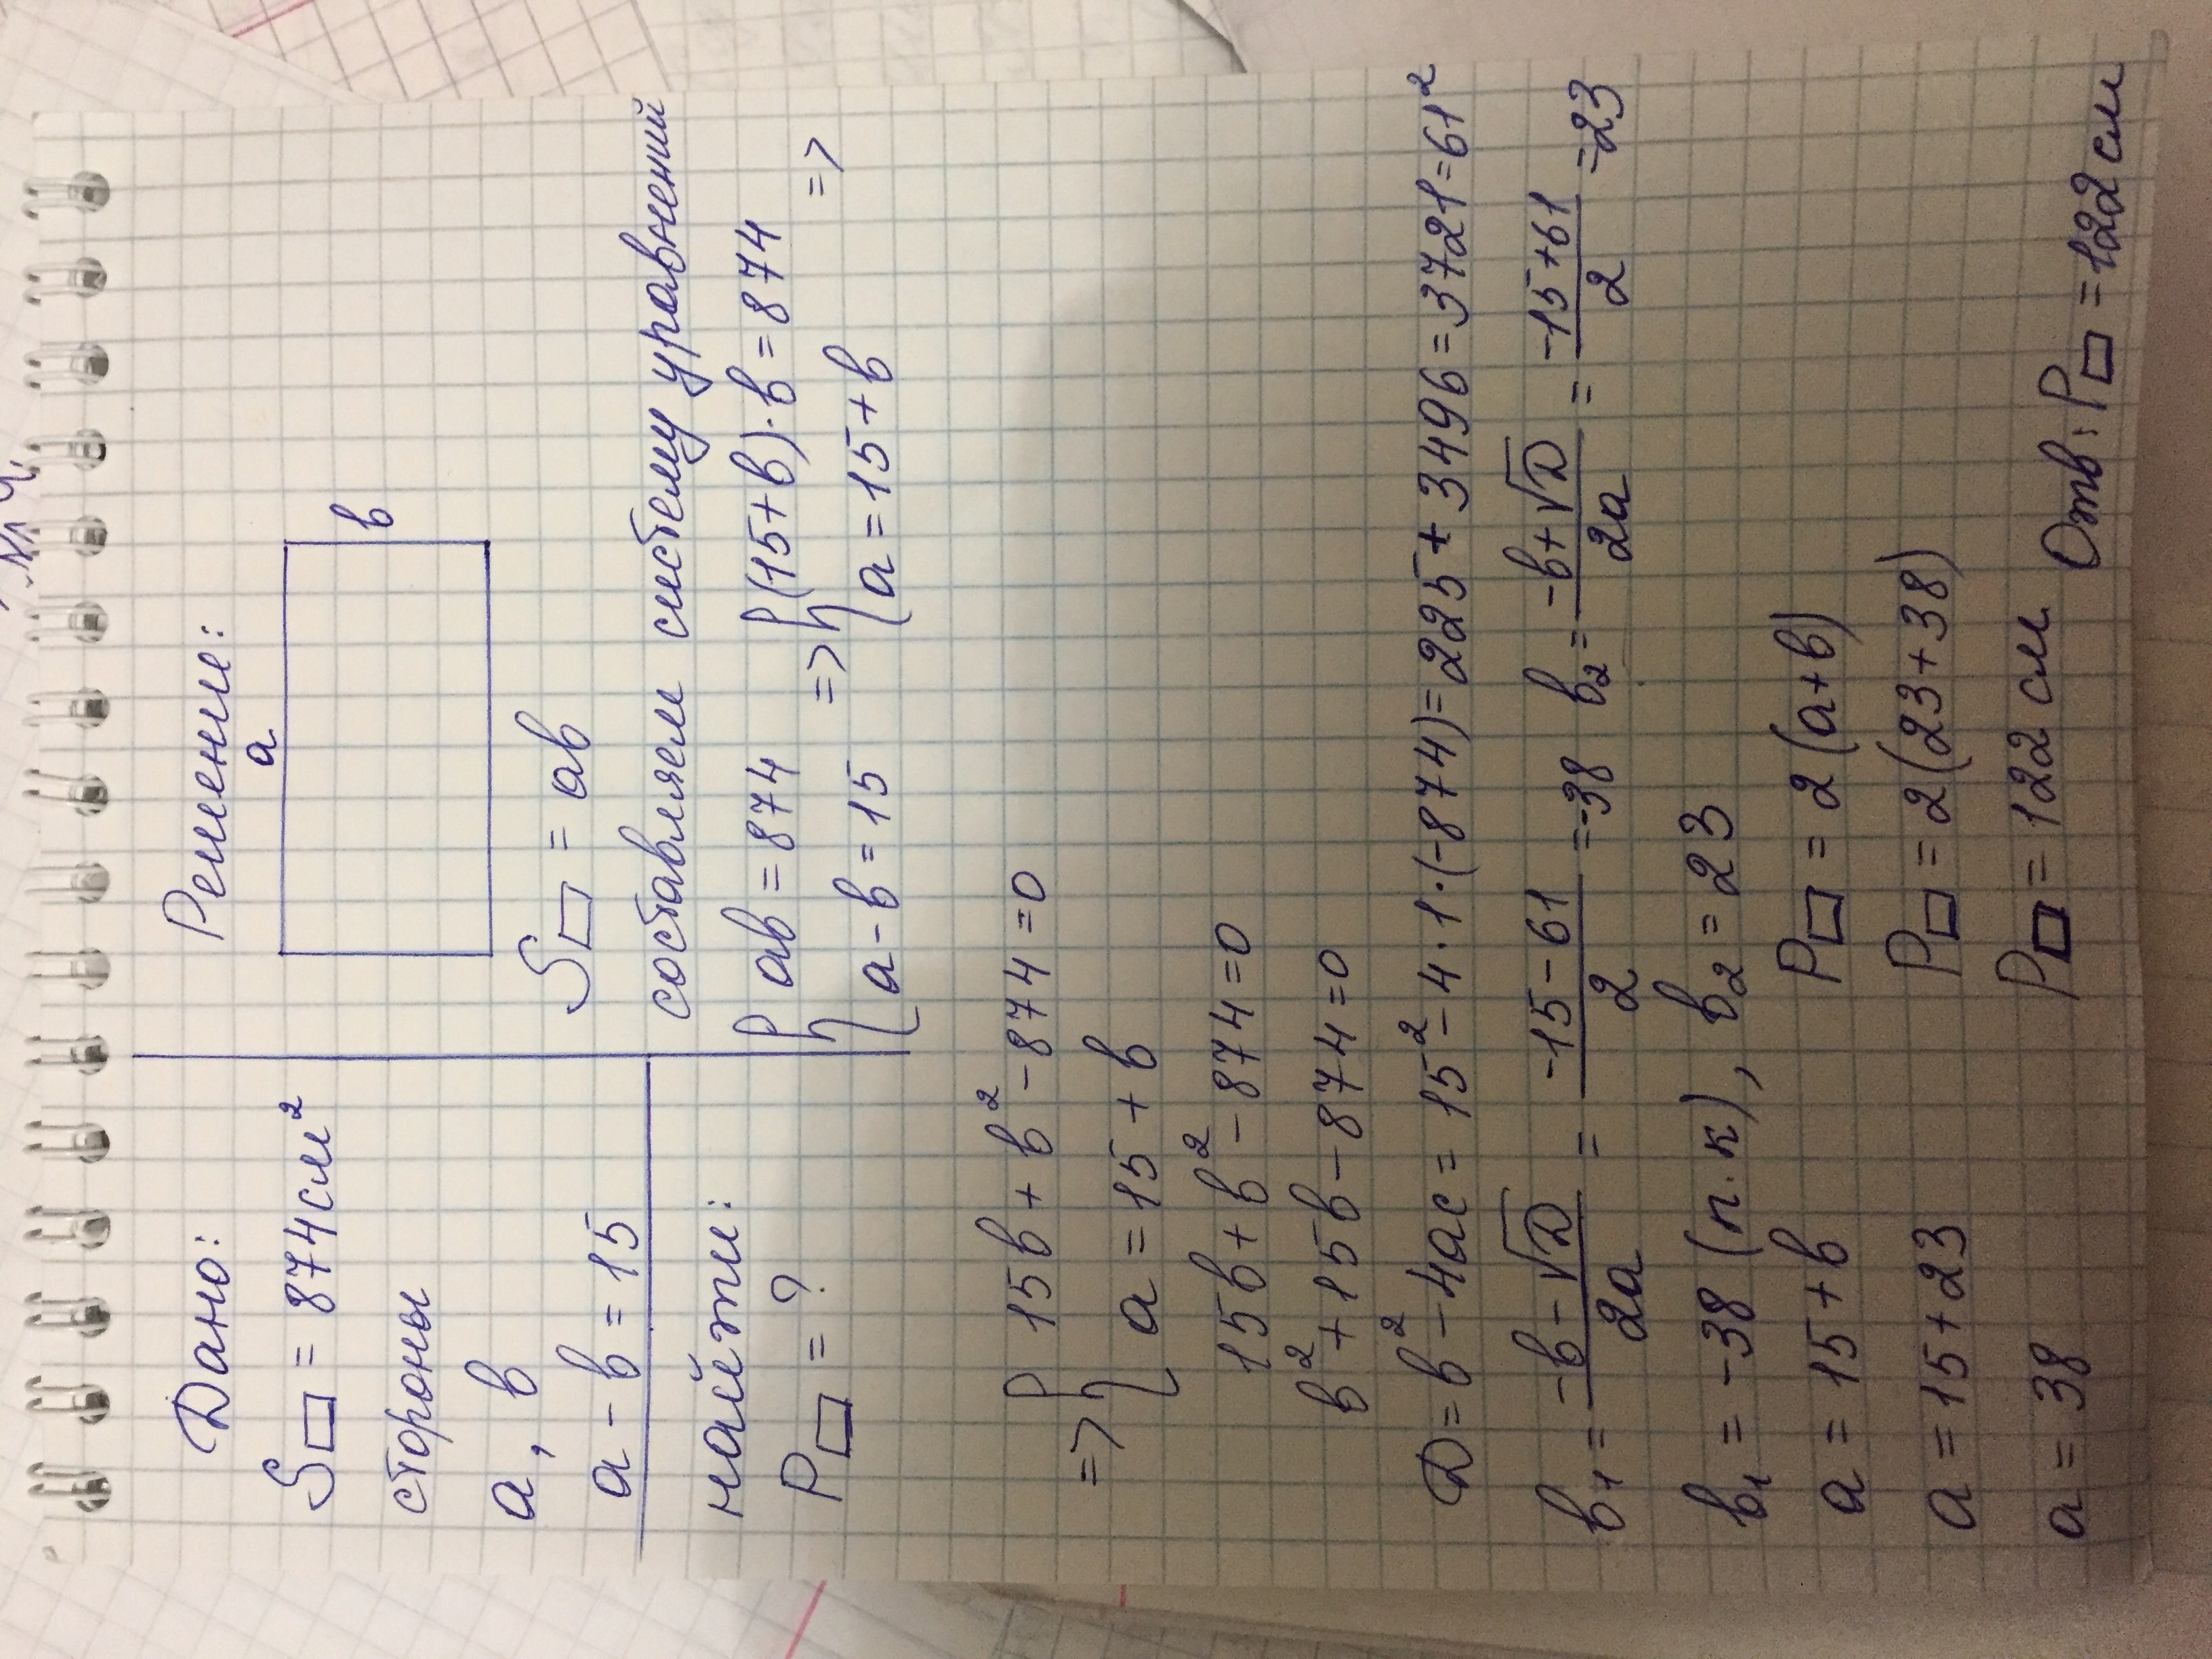 Дано:
S▭ = 874 см²
стороны
a, b
a - b = 15
найти:
P▭ = ?
Решение:
a
b
S▭ = ab
составляем систему уравнений
{ ab = 874 => { (15+b)·b = 874 =>
{ a - b = 15 { a = 15 + b
=> { 15b + b² - 874 = 0
{ a = 15 + b
15b + b² - 874 = 0
b² + 15b - 874 = 0
D = b² - 4ac = 15² - 4·1·(-874) = 225 + 3496 = 3721 = 61²
b₁ = (-b - √D)/2a = (-15 - 61)/2 = -38 b₂ = (-b + √D)/2a = (-15 + 61)/2 = 23
b₁ = -38 (п.к), b₂ = 23
a = 15 + b P▭ = 2(a+b)
a = 15 + 23 P▭ = 2(23+38)
a = 38 P▭ = 122 см Отв: P▭ = 122 см